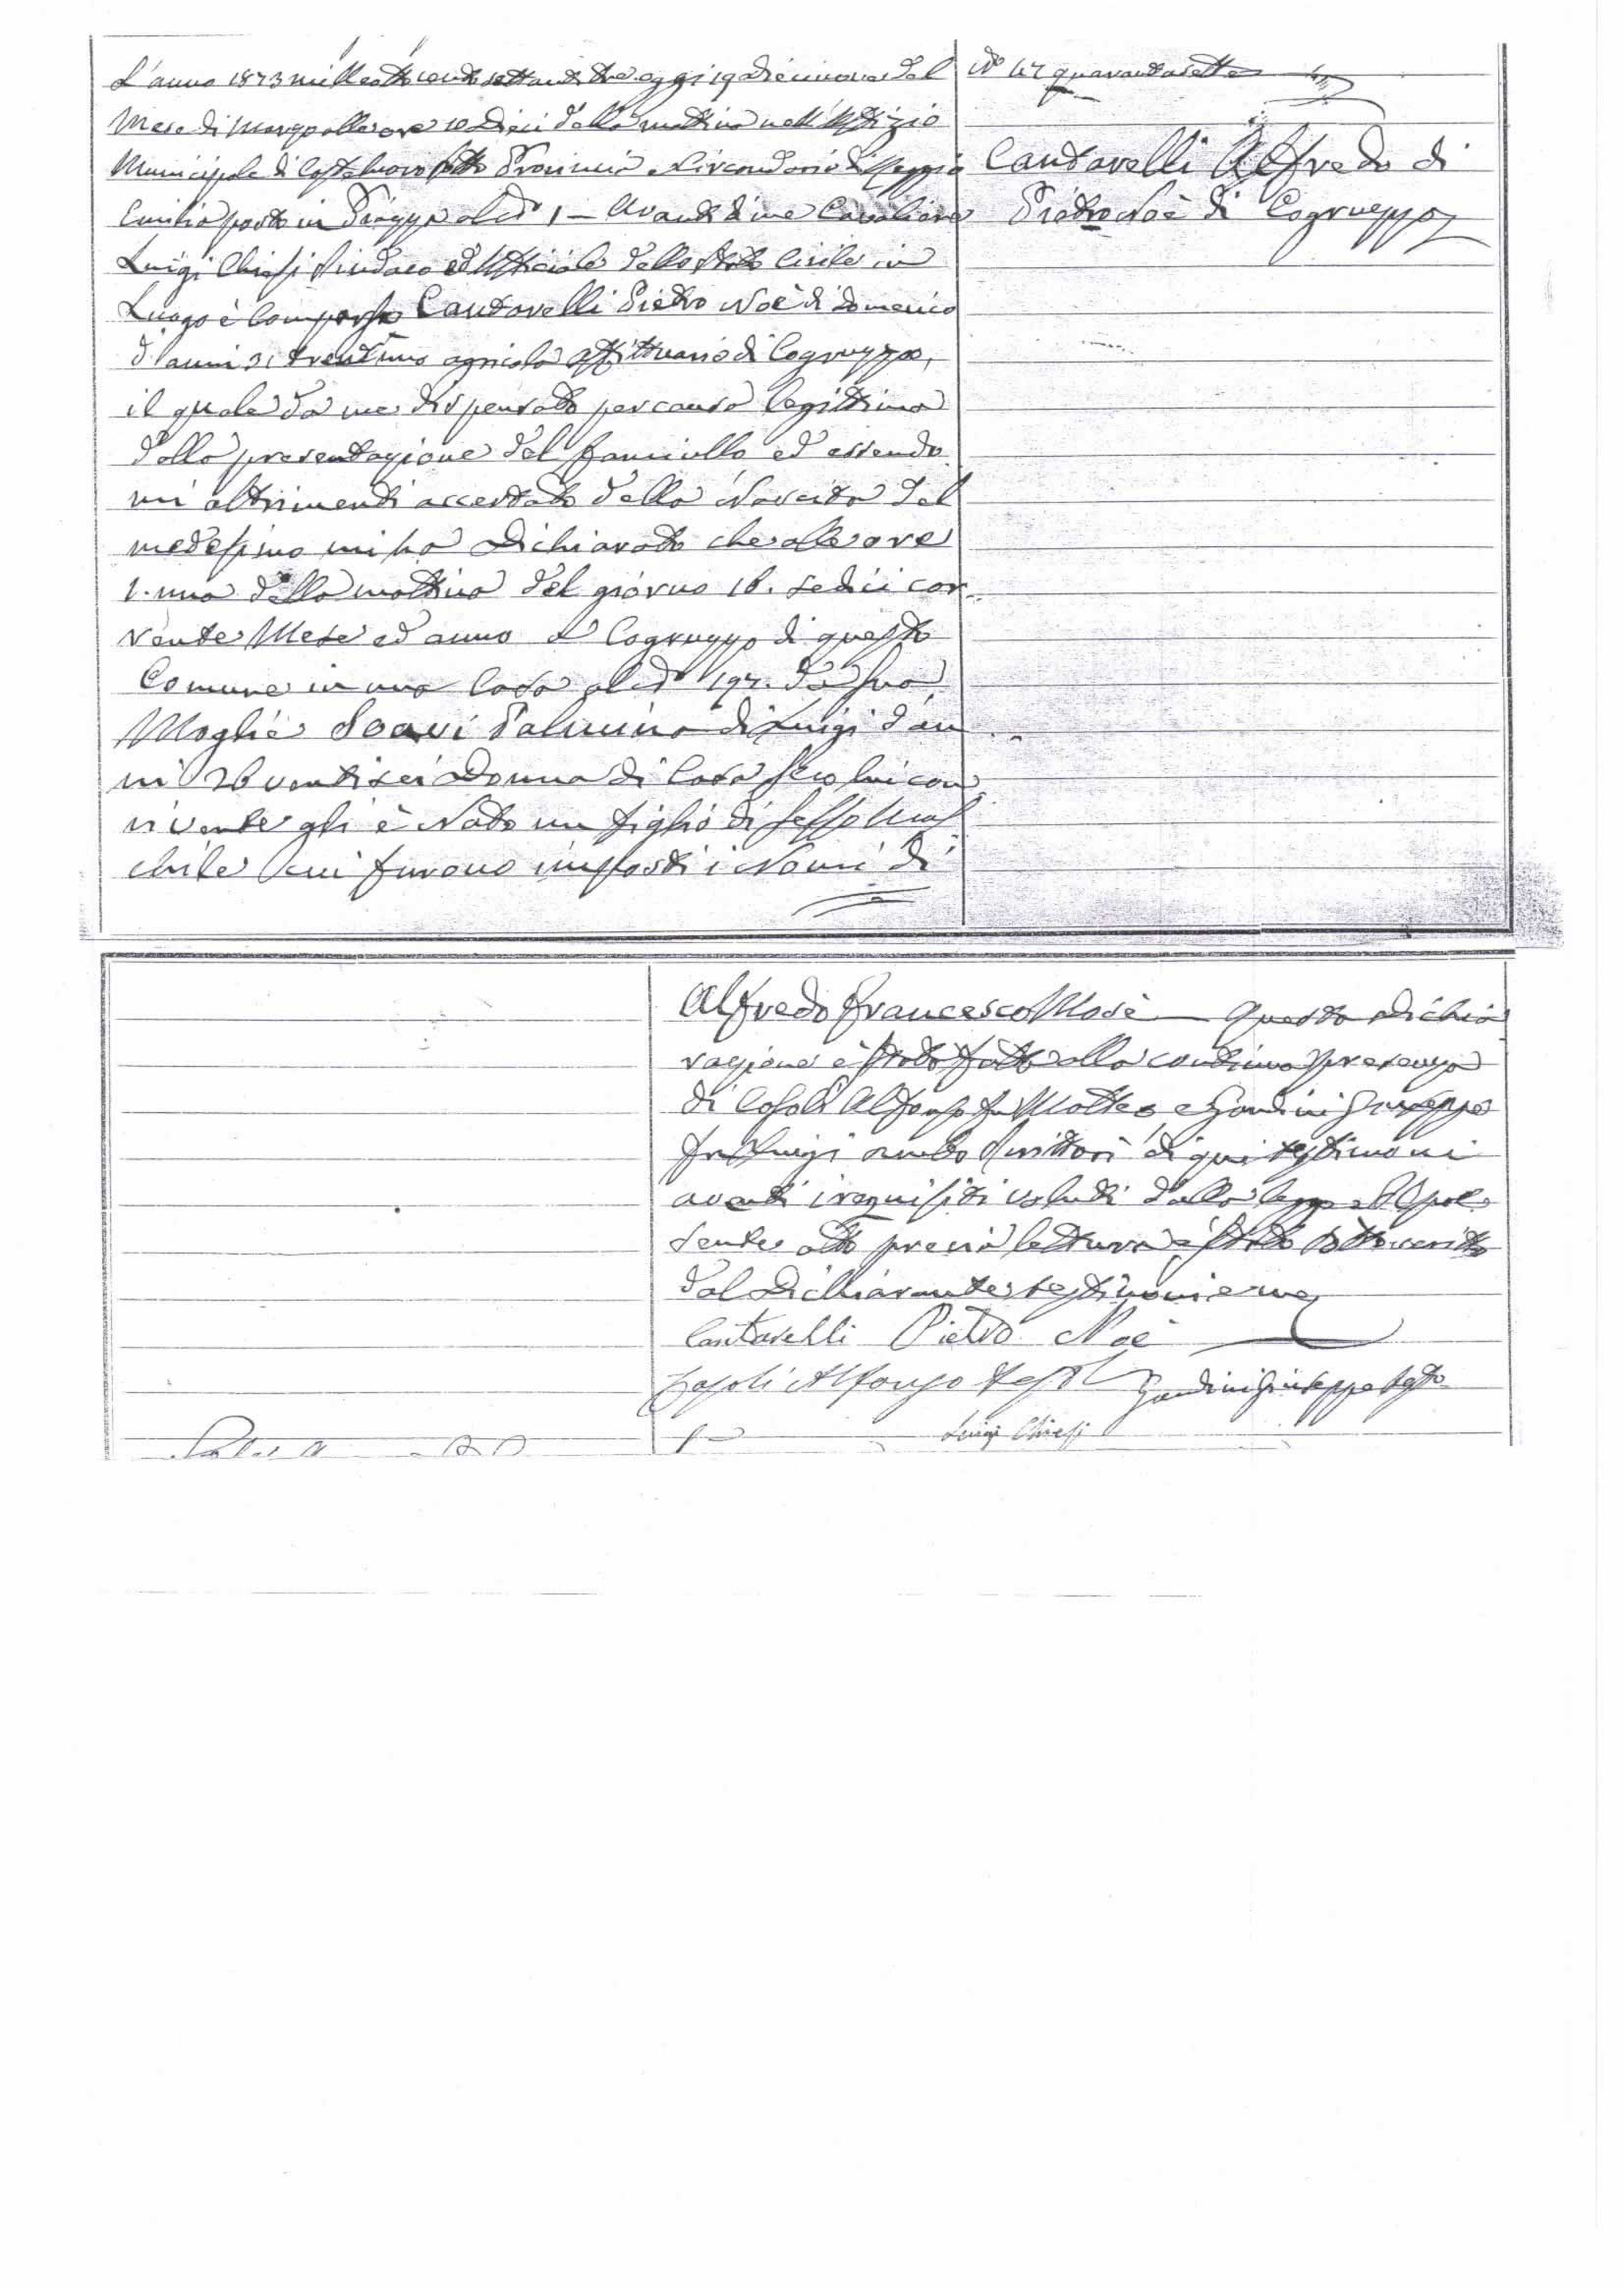 L'anno 1873 milleottocentosettantatre oggi 19 diecinove del
Mese di Marzo alle ore 10 Dieci della mattina nell'Uffizio
Municipale di Castelnovo sotto Provincia e Circondario di Reggio
Emilia posto in Piazza al N° 1 — Avanti di me Cavaliere
Luigi Chiesi Sindaco ed Ufficiale dello Stato Civile in
Luogo è Comparso Cantarelli Pietro Noè di Domenico
d'anni 31 trentuno agricola affittuario di Cogruzzo,
il quale da me dispensato per causa legittima
dalla presentazione del fanciullo ed essendo
mi altrimenti accertato della Nascita del
medesimo mi ha Dichiarato che alle ore
1. una della mattina del giorno 16. sedici cor-
rente Mese ed anno a Cogruzzo di questo
Comune in una Casa al N° 197. da sua
Moglie Soavi Palmina di Luigi d'an
ni 26 ventisei Donna di Casa seco lui con
vivente gli è Nato un figlio di sesso Mas
chile cui furono imposti i Nomi di
N° 47 quarantasette
Cantarelli Alfredo di
Pietro Noè di Cogruzzo
Alfredo Francesco Mosè — Questa Dichia
razione è stata fatta alla continua presenza
di Casoli Alfonso fu Matteo e Gandini Giuseppe
fu Luigi ambo Scrittori di qui testimoni
aventi i requisiti voluti dalla legge. Il pre
sente atto previa lettura è stato sottoscritto
dal Dichiarante testimoni e me
Cantarelli Pietro Noè
Casoli Alfonso test. Gandini Giuseppe testo
Luigi Chiesi